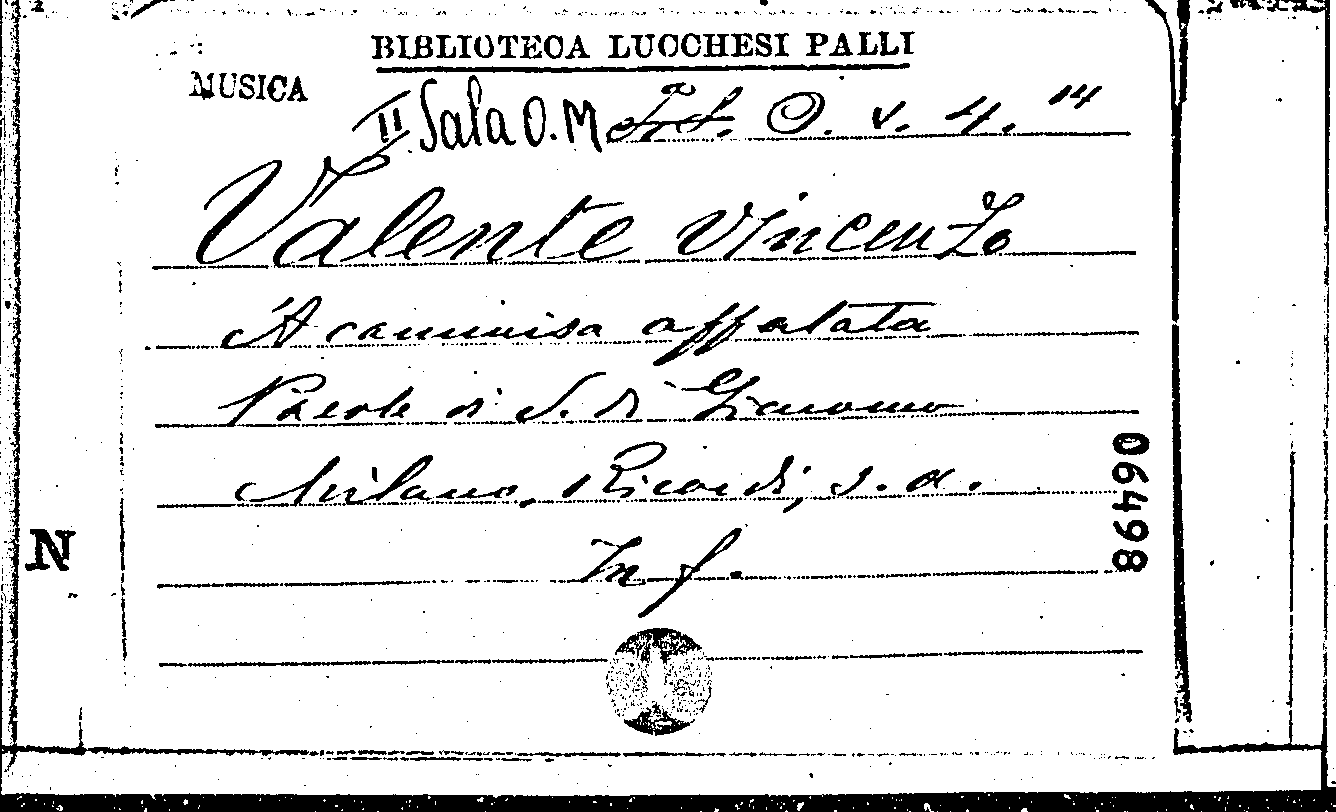 BIBLIOTECA LUCCHESI PALLI
MUSICA
II Sala O.M O. v. 4. 14
Valente Vincenzo
'A cammisa affatata
Parole di S. di Giacomo
Milano, Ricordi, s. d.
In f.
06498
N